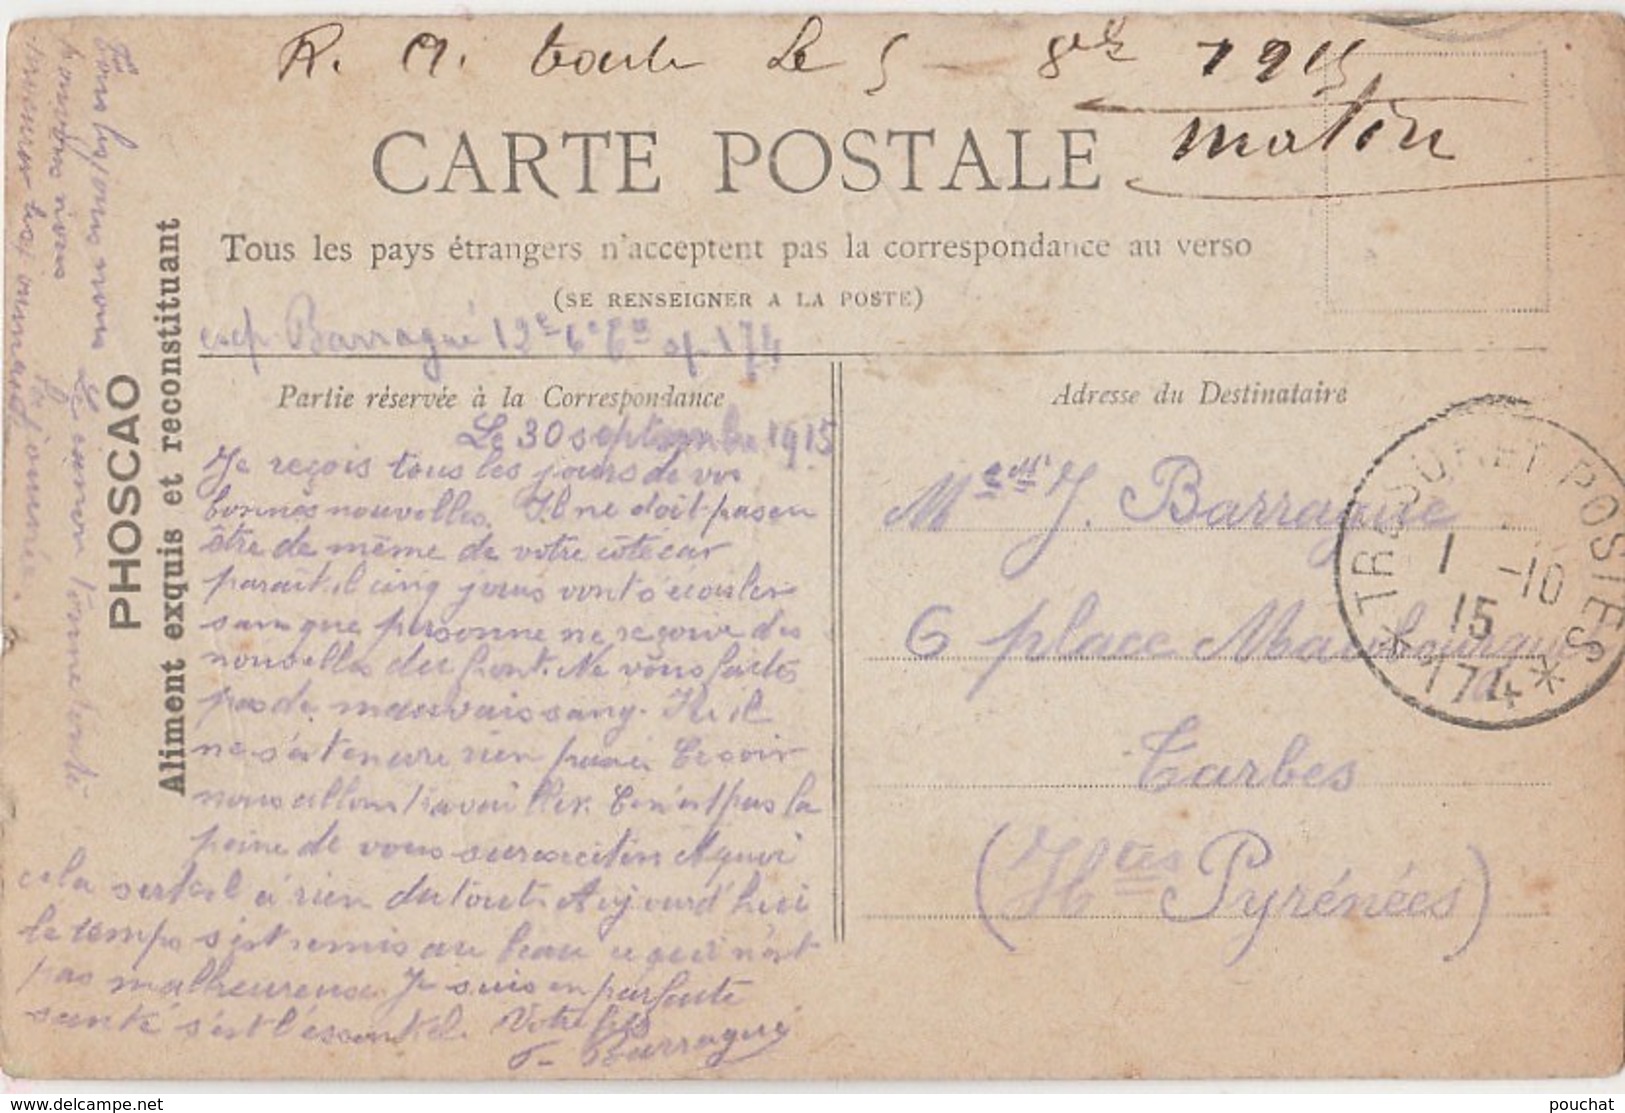 Le 5 - 8bre 1915
matin
CARTE POSTALE
Tous les pays étrangers n'acceptent pas la correspondance au verso
(SE RENSEIGNER A LA POSTE)
exp. Barragué 12e 6e Cie sp. 174
Partie réservée à la Correspondance
Le 30 septembre 1915
Je reçois tous les jours de vos
bonnes nouvelles. Il ne doit pas en
être de même de votre côté car
parait-il cinq jours vont s'écouler
sans que personne ne reçoive des
nouvelles du front. Ne vous faites
pas de mauvais sang. Ici il
ne s'est encore rien passé. Ce soir
nous allons travailler. Ce n'est pas la
peine de vous surexciter. A quoi
cela sert-il à rien du tout. Aujourd'hui
le temps s'est remis au beau ce qui n'est
pas malheureux. Je suis en parfaite
santé c'est l'essentiel. Votre fils
Barragué
Tous les jours nous
pouvons nous
Le canon tonne
journée.
PHOSCAO
Aliment exquis et reconstituant
Adresse du Destinataire
Mr et Me J. Barrague
6 place Maubourguet
Tarbes
(Htes Pyrénées)
TRESOR ET POSTES
1 -10
15
* 174 *
pouchat